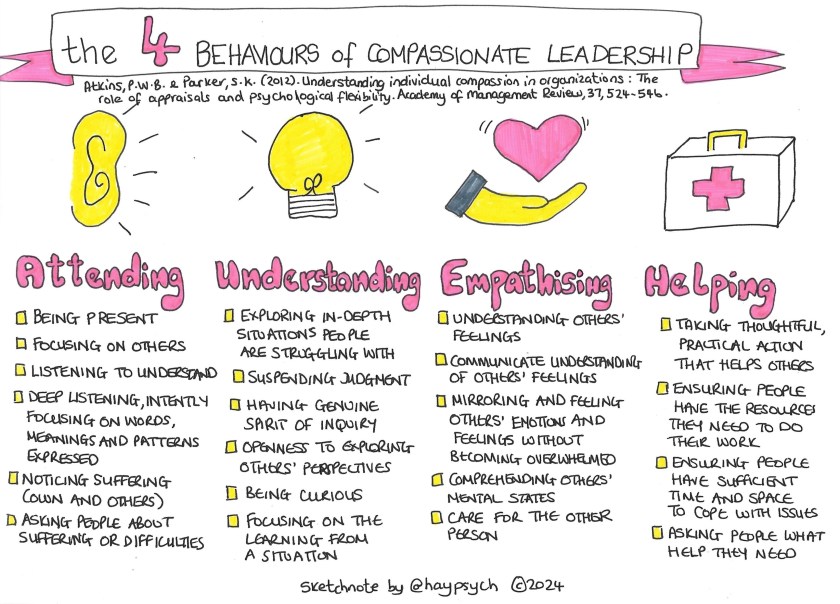 the 4 BEHAVIOURS of COMPASSIONATE LEADERSHIP
Atkins, P.W.B. & Parker, S.K. (2012). Understanding individual compassion in organizations: The
role of appraisals and psychological flexibility. Academy of Management Review, 37, 524-546.
Attending
BEING PRESENT
FOCUSING ON OTHERS
LISTENING TO UNDERSTAND
DEEP LISTENING, INTENTLY
FOCUSING ON WORDS,
MEANINGS AND PATTERNS
EXPRESSED
NOTICING SUFFERING
(OWN AND OTHERS)
ASKING PEOPLE ABOUT
SUFFERING OR DIFFICULTIES
Understanding
EXPLORING IN-DEPTH
SITUATIONS PEOPLE
ARE STRUGGLING WITH
SUSPENDING JUDGMENT
HAVING GENUINE
SPIRIT OF INQUIRY
OPENNESS TO EXPLORING
OTHERS' PERSPECTIVES
BEING CURIOUS
FOCUSING ON THE
LEARNING FROM
A SITUATION
Empathising
UNDERSTANDING OTHERS'
FEELINGS
COMMUNICATE UNDERSTANDING
OF OTHERS' FEELINGS
MIRRORING AND FEELING
OTHERS' EMOTIONS AND
FEELINGS WITHOUT
BECOMING OVERWHELMED
COMPREHENDING OTHERS'
MENTAL STATES
CARE FOR THE OTHER
PERSON
Helping
TAKING THOUGHTFUL,
PRACTICAL ACTION
THAT HELPS OTHERS
ENSURING PEOPLE
HAVE THE RESOURCES
THEY NEED TO DO
THEIR WORK
ENSURING PEOPLE
HAVE SUFFICIENT
TIME AND SPACE
TO COPE WITH ISSUES
ASKING PEOPLE WHAT
HELP THEY NEED
Sketchnote by @haypsych ©2024